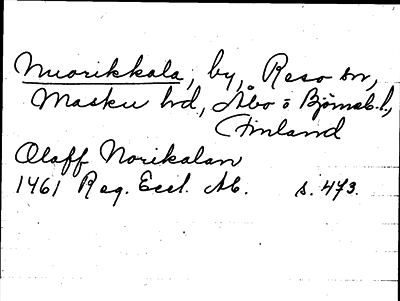 Nuorikkala, by, Reso sn,
Masku hd, Åbo o Björneb. l.,
Finland
Olaff Norikalan
1461 Reg. Eccl. Ab. s. 473.